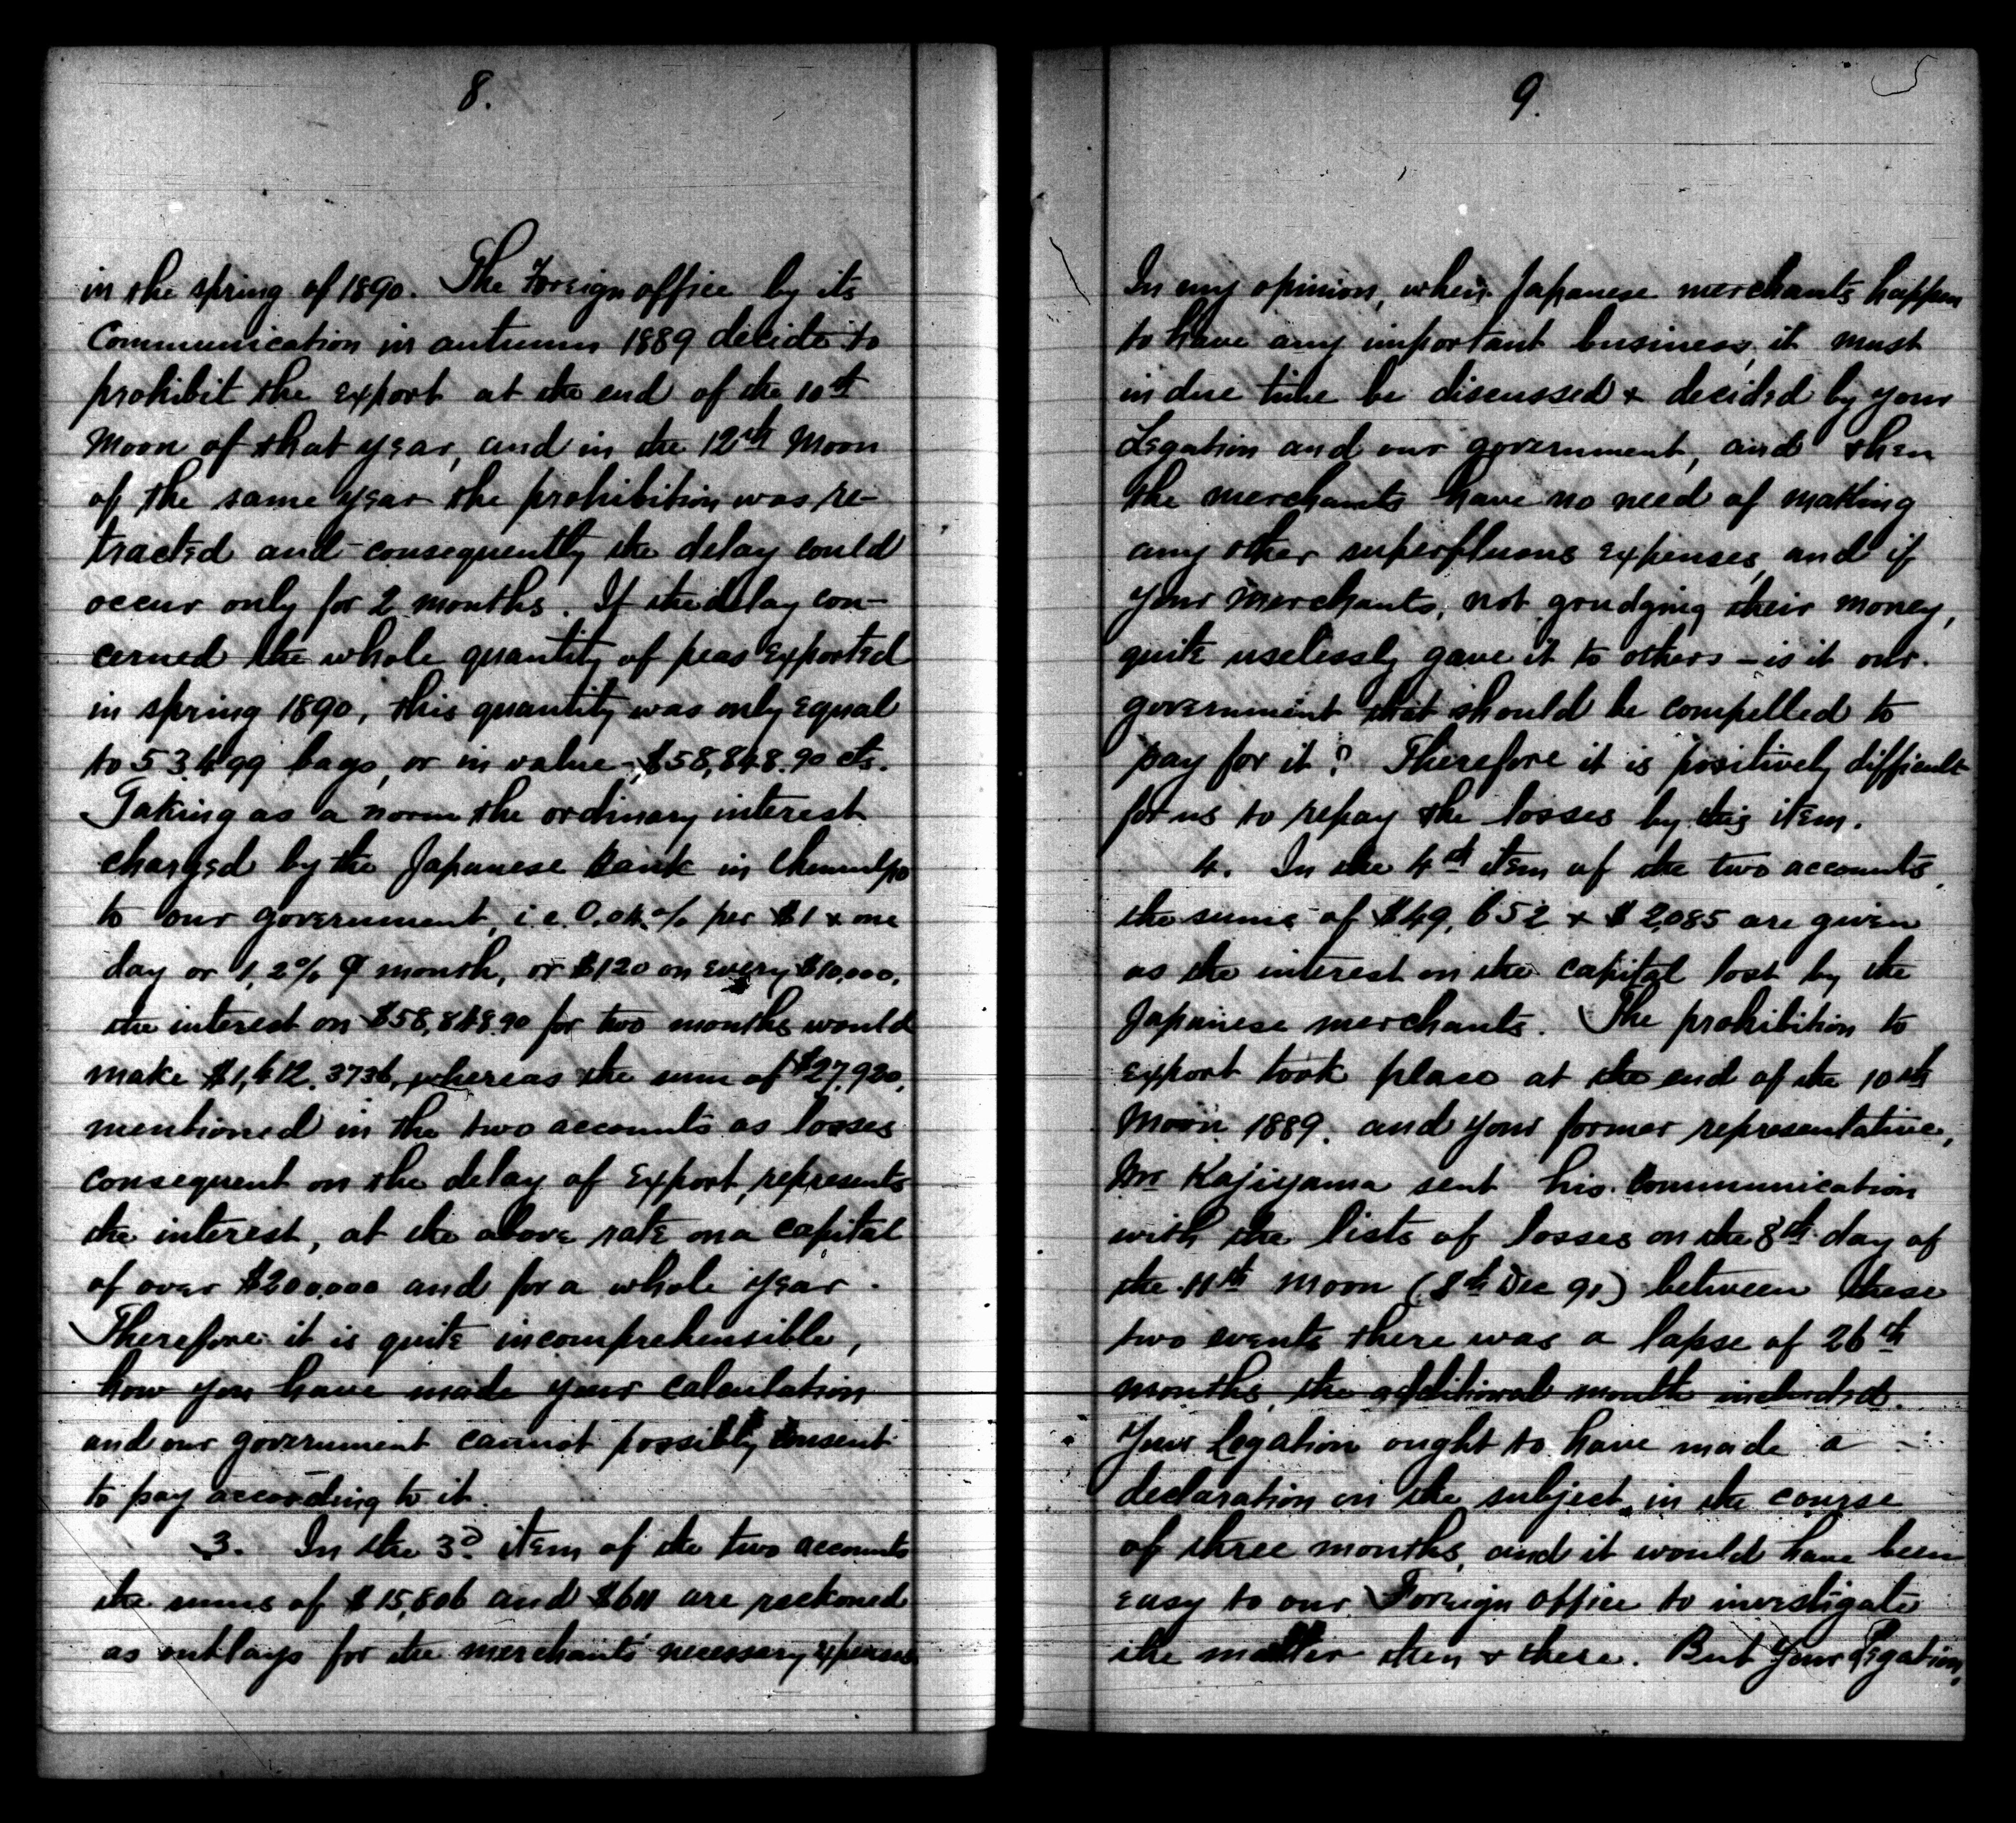 8.
in the spring of 1890. The Foreign office by its
Communication in autumn 1889 decide to
prohibit the export at the end of the 10th
Moon of that year, and in the 12th Moon
of the same year the prohibition was re-
tracted and consequently the delay could
occur only for 2 months. If the delay con-
cerned the whole quantity of peas exported
in spring 1890, this quantity was only equal
to 53,499 bags, or in value $58,848.90 cts.
Taking as a norm the ordinary interest
charged by the Japanese Bank in Chemulpo
to our government, i.e. 0,04% per $1 & one
day or 1,2% month, or $120 on every $10,000,
the interest on $58,848.90 for two months would
make $1,412.3736, whereas the sum of $27,920,
mentioned in the two accounts as losses
consequent on the delay of export, represents
the interest, at the above rate on a capital
of over $200,000 and for a whole year.
Therefore it is quite incomprehensible,
how you have made your calculation
and our government cannot possibly consent
to pay according to it.
3. In the 3d. item of the two accounts
the sums of $15,806 and $611 are reckoned
as outlays for the merchants' necessary expenses
9.
5
In my opinion, when Japanese merchants happen
to have any important business, it must
in due time be discussed & decided by your
Legation and our government, and then
the merchants have no need of making
any other superfluous expenses, and if
your merchants, not grudging their money,
quite uselessly gave it to others – is it our
government that should be compelled to
pay for it? Therefore it is positively difficult
for us to repay the losses by this item.
4. In the 4th item of the two accounts,
the sums of $49,652 & $2,085 are given
as the interest on the capital lost by the
Japanese merchants. The prohibition to
export took place at the end of the 10th
Moon 1889, and your former representative,
Mr Kajiyama sent his communication
with the lists of losses on the 8th day of
the 11th Moon (8th Dec 91) between these
two events there was a lapse of 26th
months, the additional month included.
Your Legation ought to have made a
declaration on the subject in the course
of three months, and it would have been
easy to our Foreign Office to investigate
the matter then & there. But Your Legation,